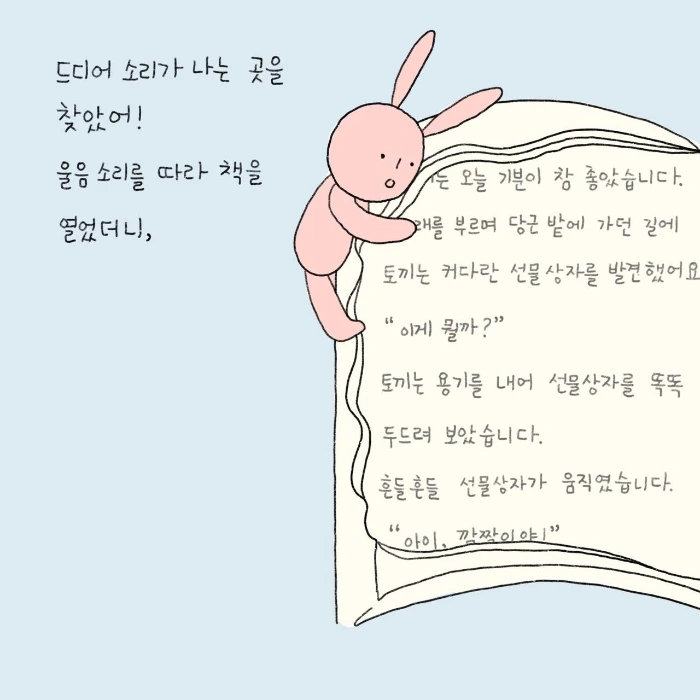 드디어 소리가 나는 곳을
찾았어!
울음 소리를 따라 책을
열었더니,
는 오늘 기분이 참 좋았습니다.
를 부르며 당근 밭에 가던 길에
토끼는 커다란 선물상자를 발견했어요
“이게 뭘까?”
토끼는 용기를 내어 선물상자를 똑똑
두드려 보았습니다.
흔들흔들 선물상자가 움직였습니다.
“아이, 깜짝이야!”